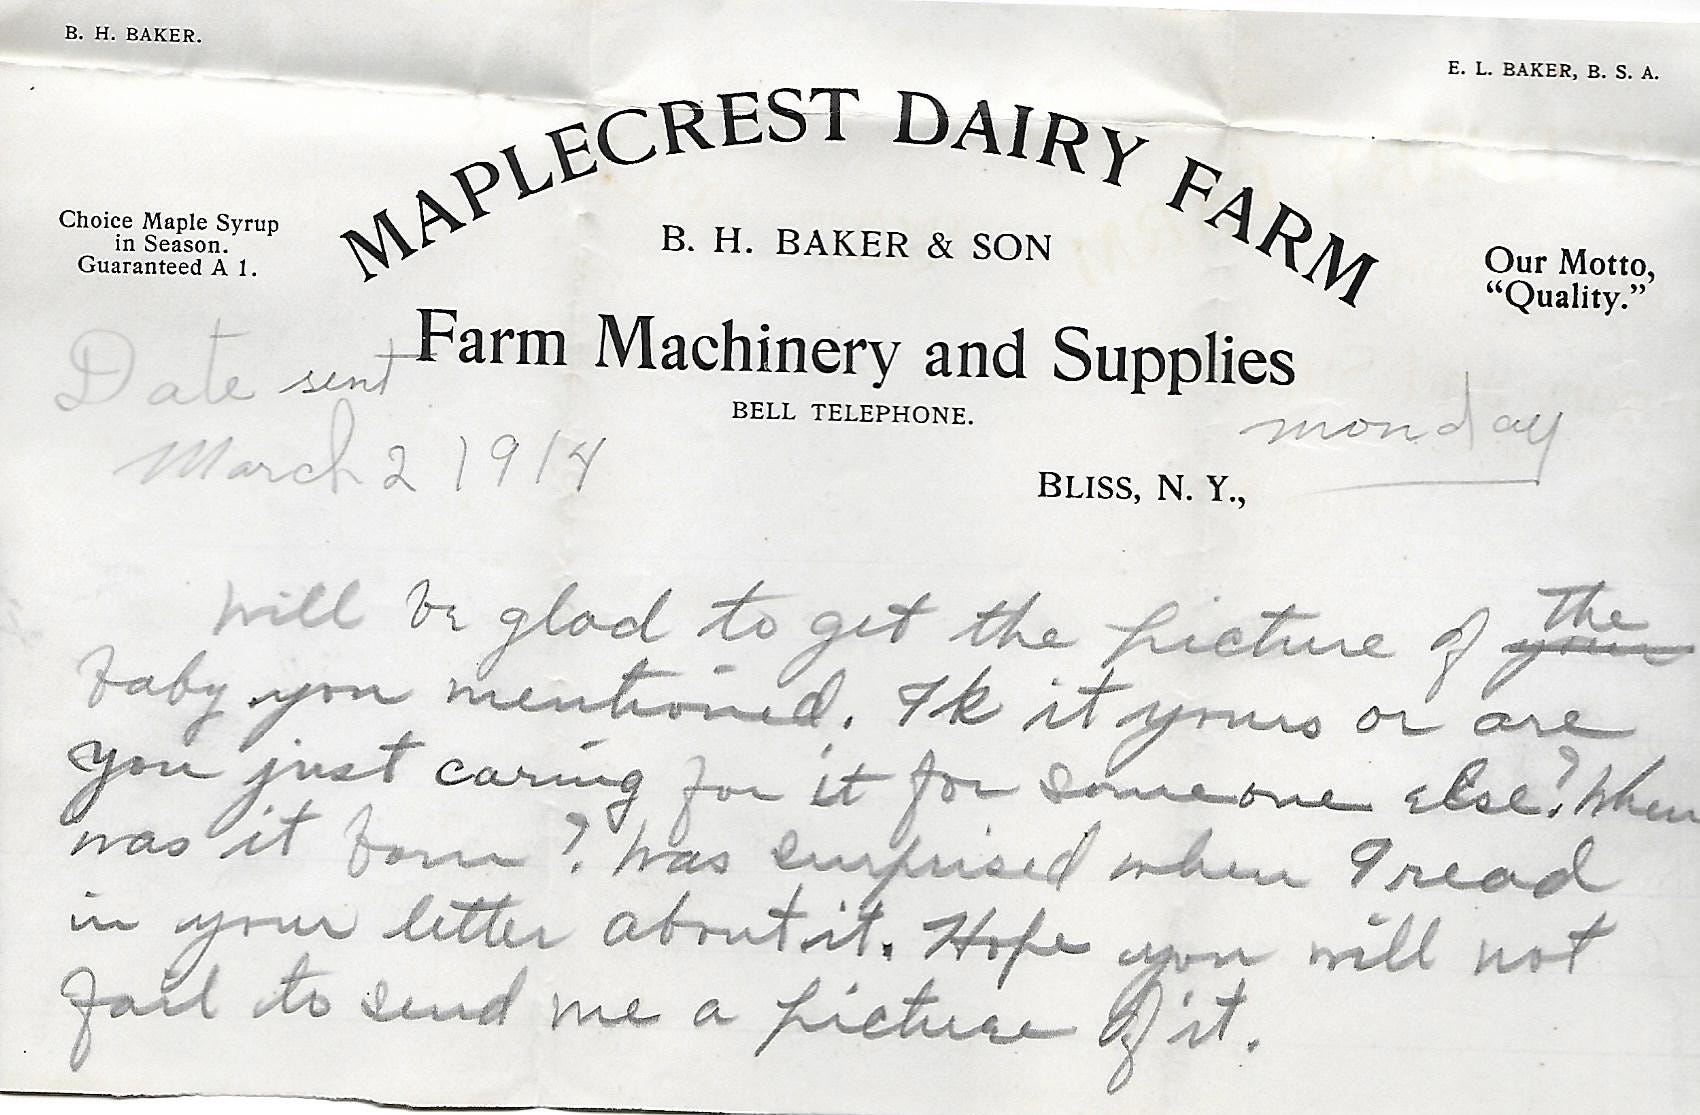 B. H. BAKER.
E. L. BAKER, B. S. A.
MAPLECREST DAIRY FARM
Choice Maple Syrup
in Season.
Guaranteed A 1.
B. H. BAKER & SON
Our Motto,
“Quality.”
Farm Machinery and Supplies
BELL TELEPHONE.
Date sent
March 2 1914
monday
BLISS, N. Y.,
Will be glad to get the picture of ~~your~~ the
baby you mentioned. Is it yours or are
you just caring for it for someone else? When
was it born? Was surprised when I read
in your letter about it. Hope you will not
fail to send me a picture of it.